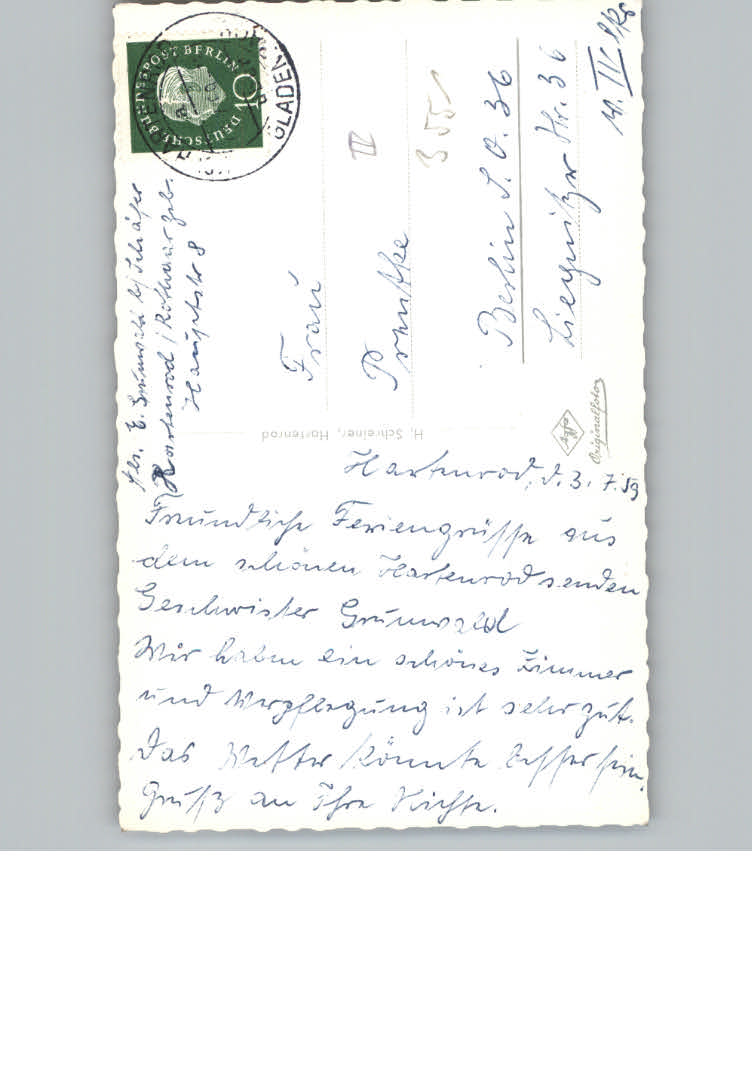 Hartenrod, d. 3. 7. 59
Freundliche Feriengrüsse aus
dem schönen Hartenrod senden
Geschwister Grunwald
Wir haben ein schönes Zimmer
und Verpflegung ist sehr gut.
Das Wetter könnte besser sein.
Gruß an Ihre Nichte.
Frau
Berlin S.O. 36
Liegnitzer Str. 36
IV
II
355
Grunwald b/ Schäfer
Hartenrod /
Hauptstr 8
DEUTSCHE BUNDESPOST BERLIN
10
GLADEN
H. Schreiner, Hartenrod
Agfa
Originalfoto